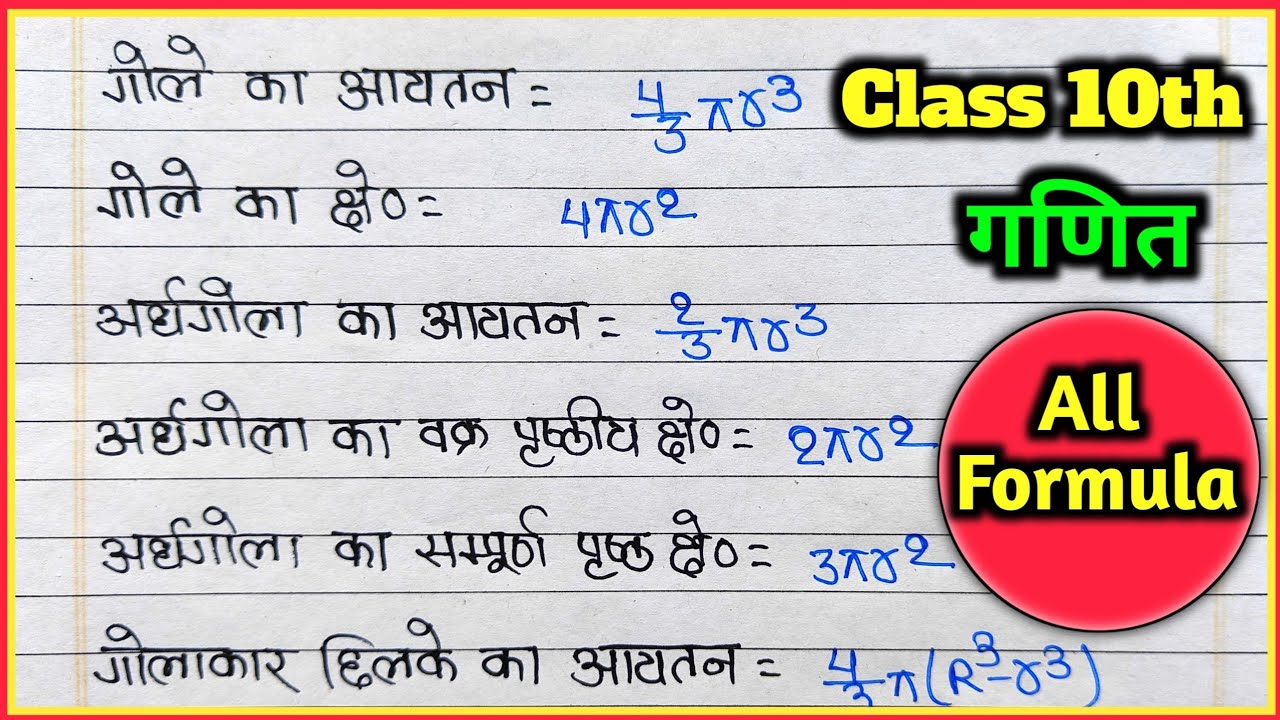 गोले का आयतन = 4/3 πr³
गोले का क्षे० = 4πr²
अर्धगोला का आयतन = 2/3 πr³
अर्धगोला का वक्र पृष्ठीय क्षे० = 2πr²
अर्धगोला का सम्पूर्ण पृष्ठ क्षे० = 3πr²
गोलाकार छिलके का आयतन = 4/3 π(R³-r³)
Class 10th
गणित
All
Formula